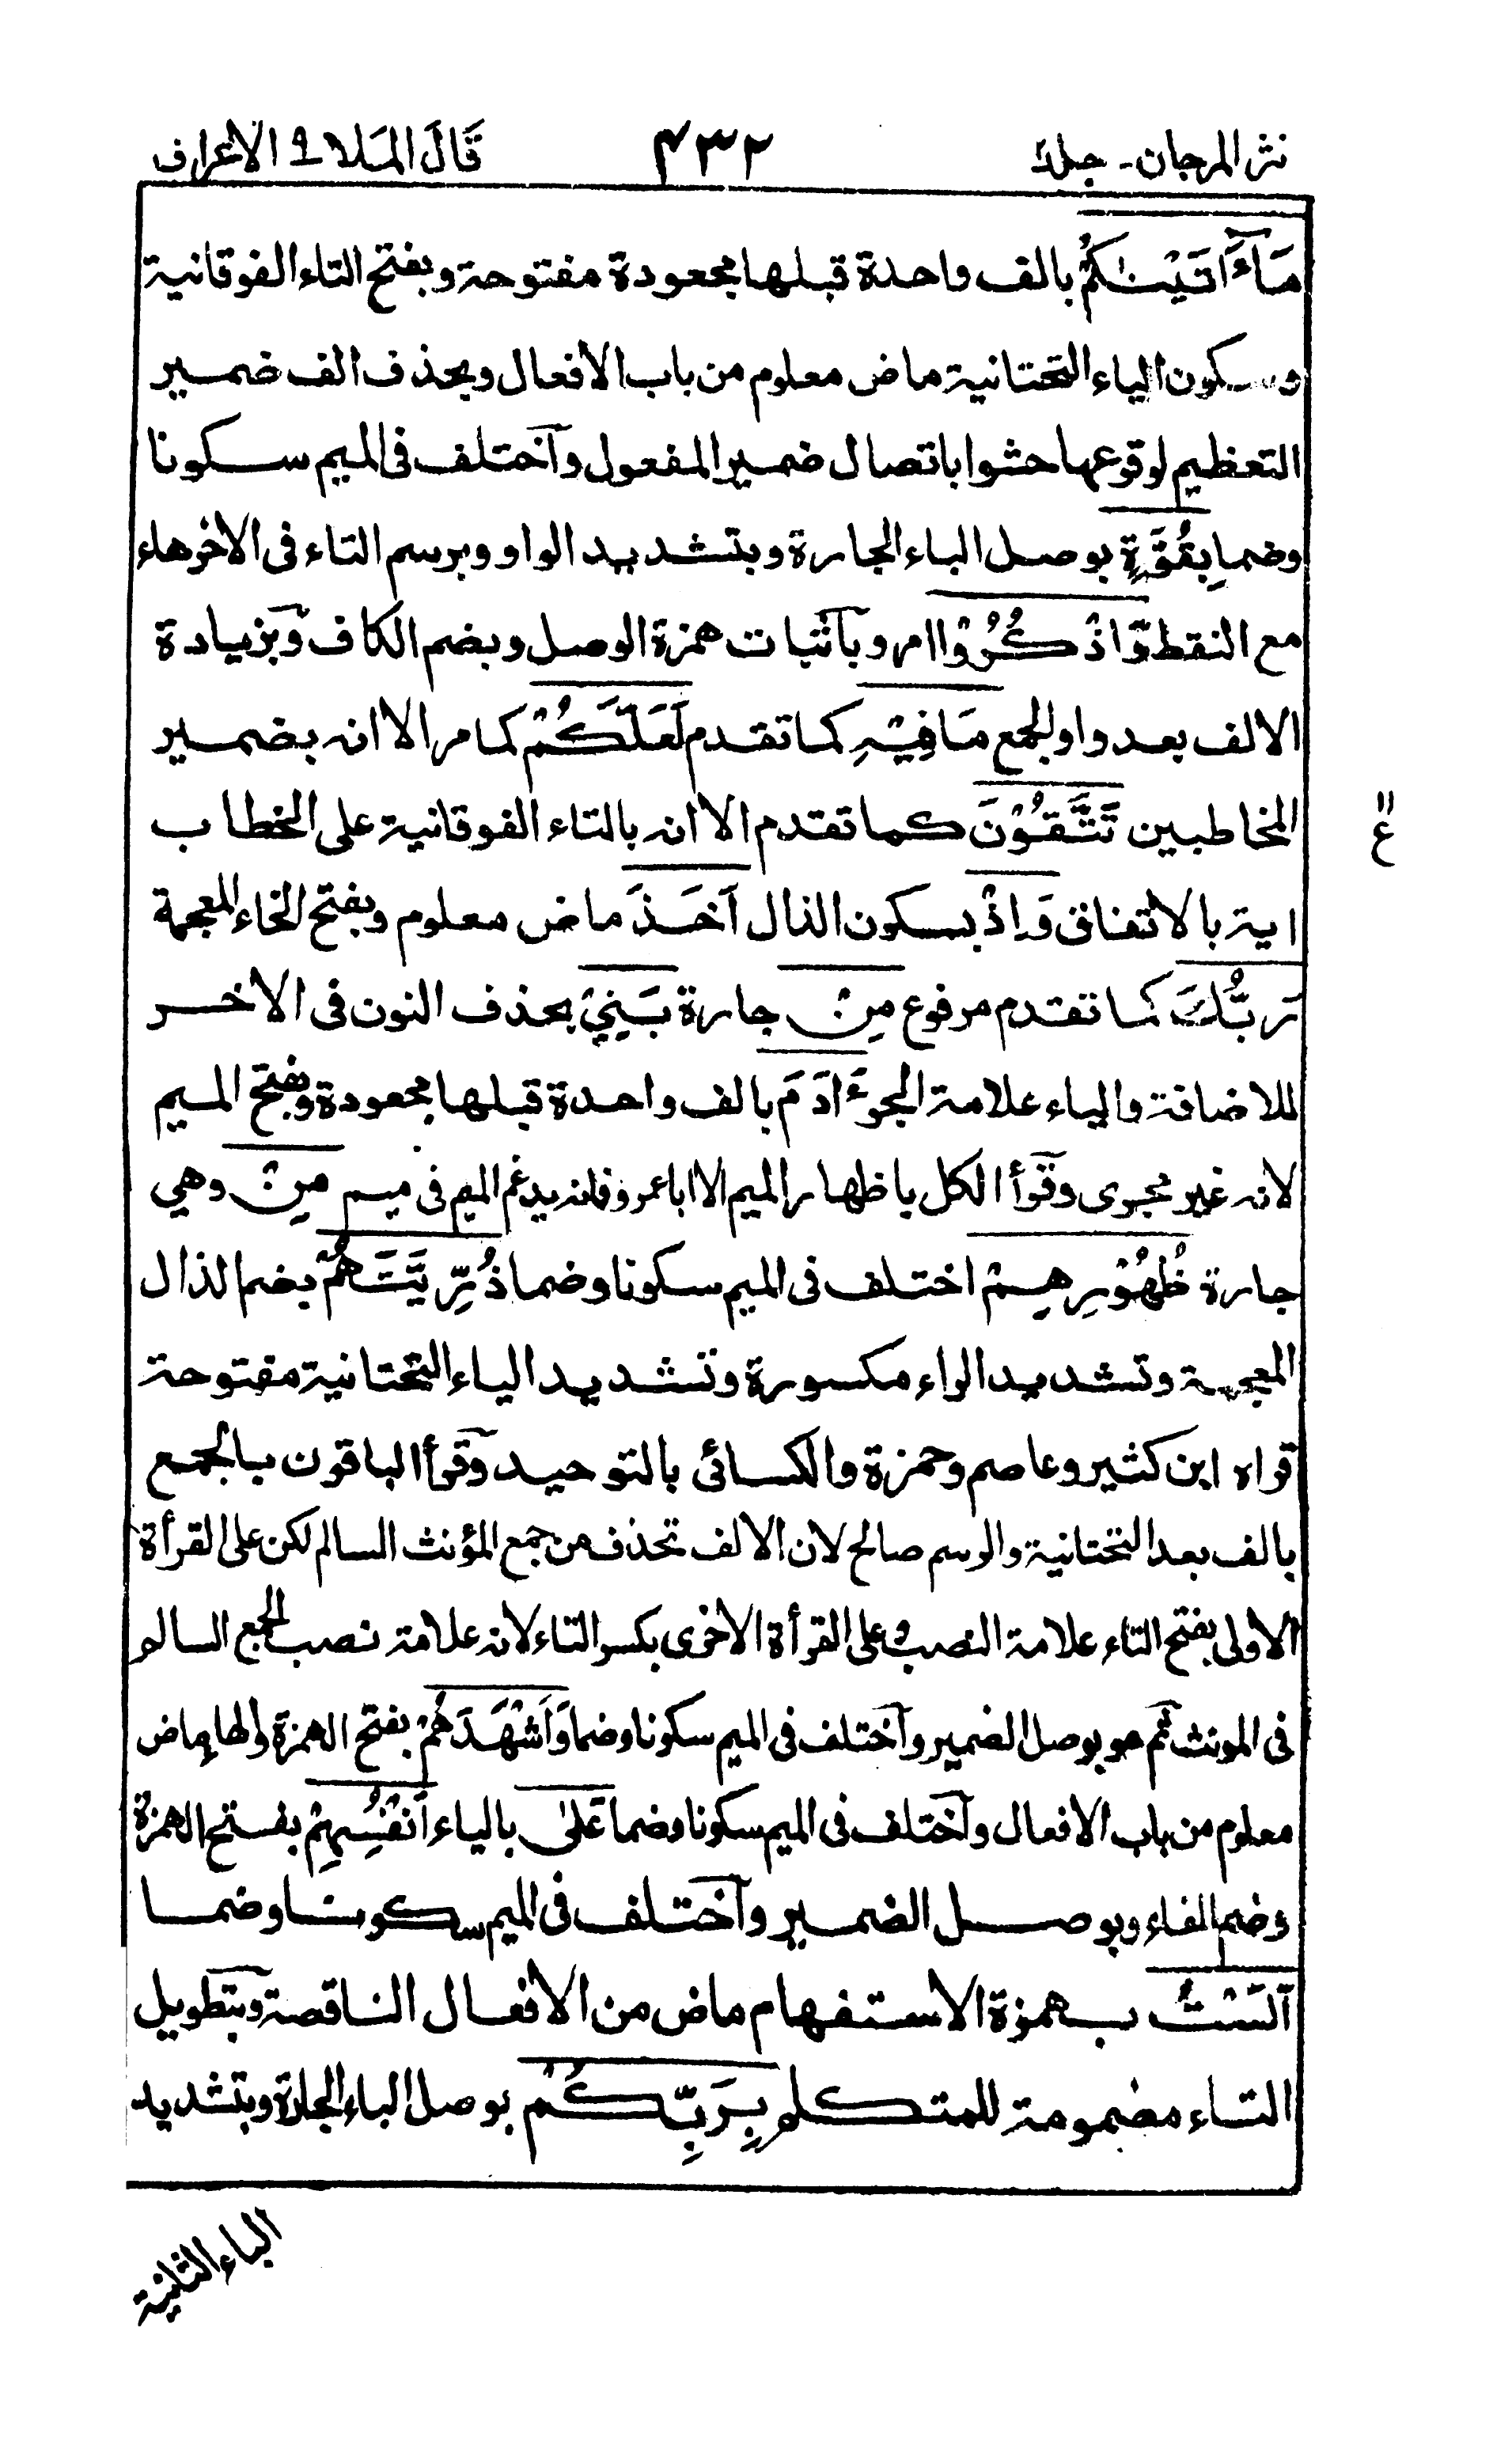 نثر المرجان - جلد
۴۳۲
قَالَ المَلا ۹ الاعراف
مَآءَاتَيْنٰكُمْ بالف واحدة قبلها مجعودة مفتوحة وبفتح التاء الفوقانية
وسكون الياء التحتانية ماض معلوم من باب الافعال وبحذف الف ضمير
التعظيم لوقوعها حشوا باتصال ضمير المفعول وآختلف فى الميم سكونا
وضما بِقُوَّةٍ بوصل الباء الجارة وبتشديد الواو وبرسم التاء فى الاخرهاء
مع النقط وَّاذْكُرُوْا امر وبآثبات همزة الوصل وبضم الكاف وبزيادة
الالف بعد واو الجمع مَا فِيْهِ كما تقدم لَعَلَّكُمْ كما مر الا انه بضمير
المخاطبين تَتَّقُوْنَ كما تقدم الا انه بالتاء الفوقانية على الخطاب
اية بالاتفاق وَاِذْ بسكون الذال اَخَذَ ماض معلوم وبفتح الخاء المعجمة
رَبُّكَ كما تقدم مرفوع مِنْ جارة بَنِيْ بحذف النون فى الاخر
للاضافة والياء علامة الجر ءَادَمَ بالف واحدة قبلها مجعودة وبفتح الميم
لانه غير مجرى وقرأ الكل باظهار الميم الا ابا عمرو فانه يدغم الميم فى ميم مِنْ وهي
جارة ظُهُوْرِهِمْ اختلف فى الميم سكونا وضما ذُرِّيَّتَهُمْ بضم الذال
المعجمة وتشديد الراء مكسورة وتشديد الياء التحتانية مفتوحة
قراه ابن كثير وعاصم وحمزة والكسائى بالتوحيد وقرأ الباقون بالجمع
بالف بعد التحتانية والرسم صالح لان الالف تحذف من جمع المؤنث السالم لكن على القرأة
الاولى بفتح التاء علامة النصب وعلى القرأة الاخرى بكسر التاء لانه علامة نصب الجمع السالم
فى المونث ثم هو بوصل الضمير وآختلف فى الميم سكونا وضما وَاَشْهَدَهُمْ بفتح الهمزة والهاء ماض
معلوم من باب الافعال وآختلف فى الميم سكونا وضما عَلىٰ بالياء اَنْفُسِهِمْ بفتح الهمزة
وضم الفاء وبوصل الضمير وآختلف فى الميم سكونا وضما
اَلَسْتُ بهمزة الاستفهام ماض من الافعال الناقصة وبتطويل
التاء مضمومة للمتكلم بِرَبِّكُمْ بوصل الباء الجارة وبتشديد
الباء الثانية
ع ۱۱